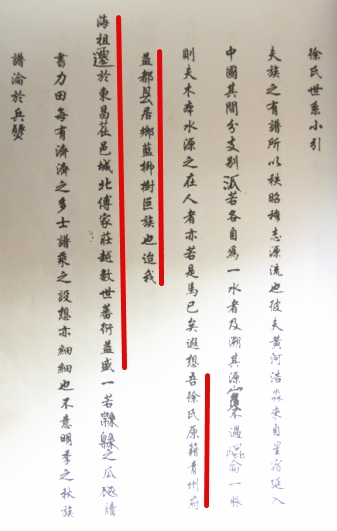 徐氏世系小引
夫族之有譜所以秩昭穆志源流也彼夫黃河浩淼來自星宿延入
中國其間分支別派若各自為一水者及溯其源實不過崑崙一脈
則夫木本水源之在人者亦若是焉已矣遐想吾徐氏原籍青州府
益都县居鄉藍柳樹巨族也迨我
海祖遷於東昌茌邑城北傅家莊越數世蕃衍益盛一若緜緜之瓜瓞讀
書力田每有濟濟之多士譜乘之設想亦細細也不意明季之秋族
譜淪於兵燹